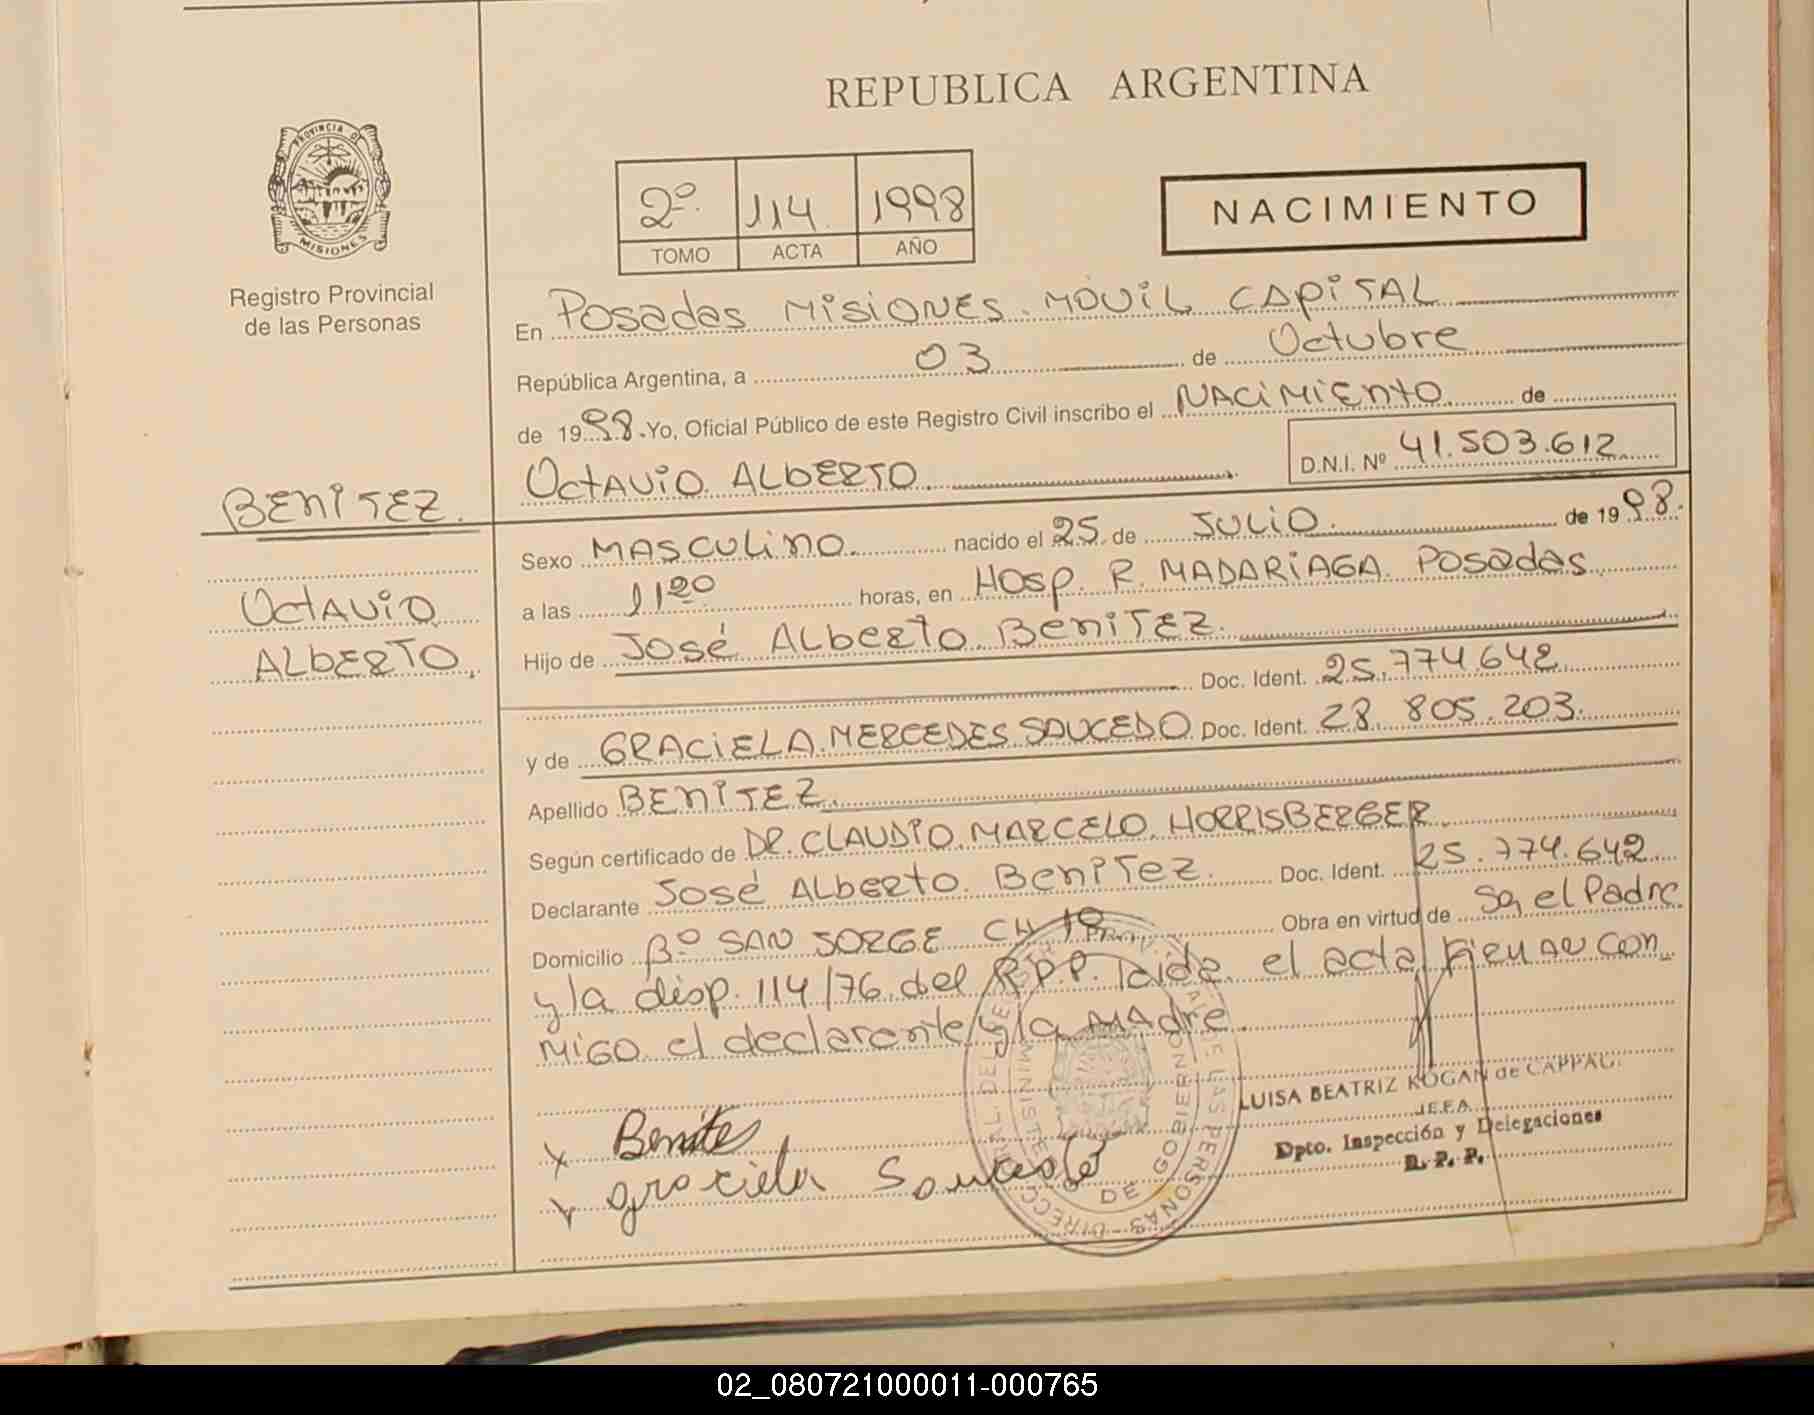 REPUBLICA ARGENTINA
PROVINCIA DE
MISIONES
Registro Provincial
de las Personas
2º 114 1998
TOMO ACTA AÑO
NACIMIENTO
En Posadas MISIONES. MOVIL CAPITAL
República Argentina, a 03 de Octubre
de 1998. Yo, Oficial Público de este Registro Civil inscribo el NACIMIENTO de
OCTAVIO ALBERTO D.N.I. Nº 41.503.612
BENITEZ.
OCTAVIO
ALBERTO
Sexo MASCULINO. nacido el 25 de JULIO. de 1998.
a las 11 20 horas, en HOSP. R. MADARIAGA. Posadas
Hijo de José Alberto BENITEZ.
Doc. Ident. 25.774.642
y de GRACIELA MERCEDES SAUCEDO Doc. Ident. 28.805.203.
Apellido BENITEZ
Según certificado de DR. CLAUDIO MARCELO HORRISBERGER
Declarante José Alberto Benitez. Doc. Ident. 25.774.642
Domicilio Bº SAN JORGE CH 18 Obra en virtud de ser el Padre
y la disp. 114/76 del R.P.P. leida el acta, firman con
migo el declarante y la madre.
x Benites
x graciela Saucedo
LUISA BEATRIZ KOGAN de CAPPAG.
JEFA
Dpto. Inspección y Delegaciones
R. P. P.
DE LAS PERSONAS
MINISTE
DE GOBIERNO
02_080721000011-000765